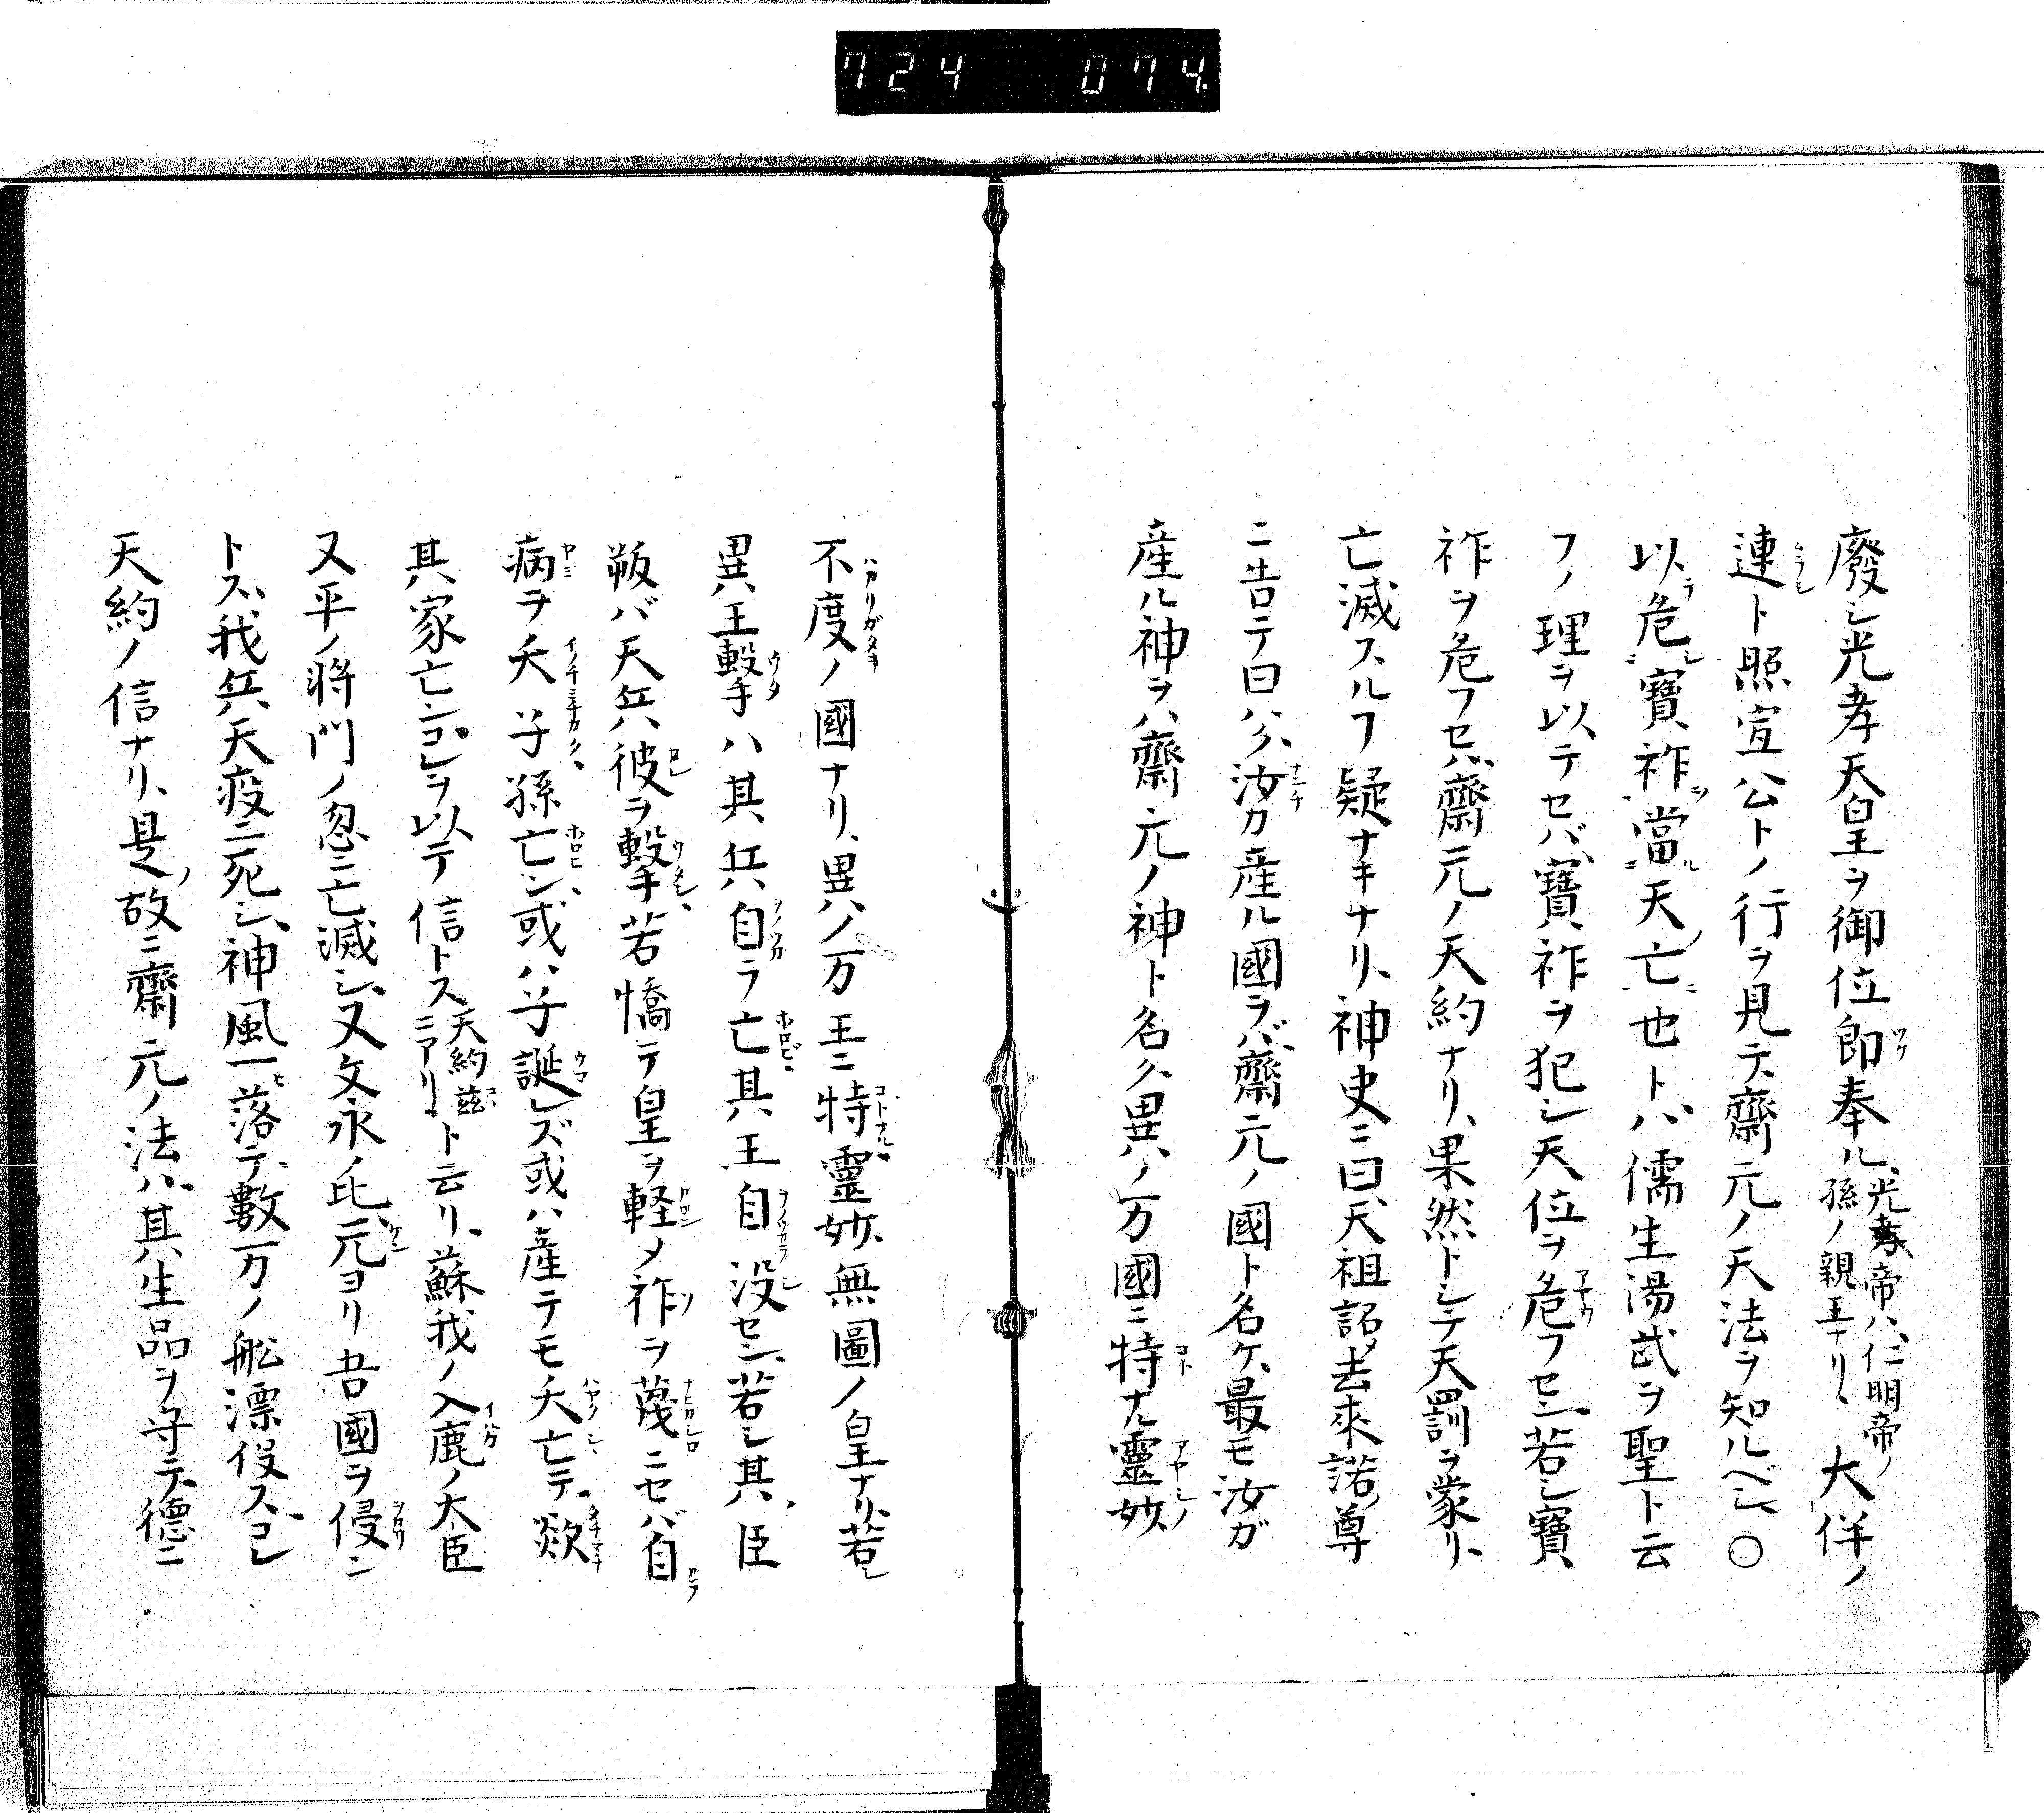 724 074
廢シ光孝天皇ヲ御位即奉ル、光孝帝ハ、仁明帝ノ孫ノ親王ナリ、大伴ノ
連ト照宣公トノ行ヲ見テ、齋元ノ天法ヲ知ルベシ、〇
以テ危ニ寶祚ヲ當ル天ノ亡ニ也トハ、儒生湯武ヲ聖ト云
フノ理ヲ以テセバ、寶祚ヲ犯シ天位ヲ危フセン、若シ寶
祚ヲ危フセハ、齋元ノ天約ナリ、果然トシテ天罰ヲ蒙リ、
亡滅スルヿ疑ナキナリ、神史ニ曰、天祖詔メ去來諾ノ尊
ニ告テ曰ハク、汝カ産ル國ヲバ、齋元ノ國ト名ケ、最モ汝ガ
産ル神ヲハ、齋元ノ神ト名ク、異ハノ万國ニ特ナル靈妙、
不度ノ國ナリ、異ハノ万王ニ特靈妙、無圖ノ皇ナリ、若シ
異ハ王擊ハ其兵自ラ亡其王自没セン、若シ其臣
叛バ天兵彼ヲ擊若憍テ皇ヲ軽メ祚ヲ蔑ニセバ自
病ヲ夭子孫亡ン、或ハ子誕レズ或ハ産テモ夭亡テ、欻
其家亡ン、コレヲ以テ信トス天約茲ニアリト云リ、蘇我ノ入鹿ノ大臣
又平ノ將門ノ忽ニ亡滅シ、又文永ノ比、元ヨリ吾國ヲ侵ン
トス、我兵天疫ニ死シ、神風一落テ、數万ノ舩漂役ス、コレ
天約ノ信ナリ、是ノ故ニ齋元ノ法ハ、其生品ヲ守テ、德ニ